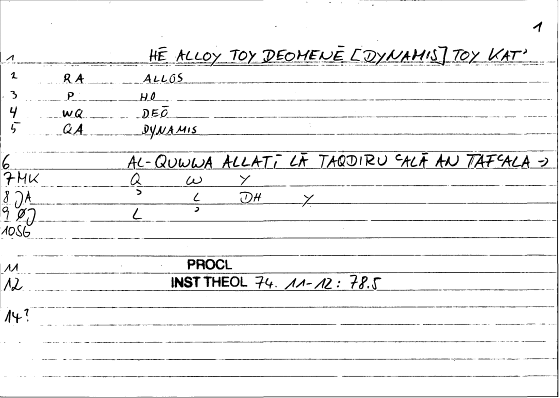 1
1 HĒ ALLOY TOY DEOMENĒ [DYNAMIS] TOY KAT'
2 RA ALLOS
3 P HO
4 WQ DEŌ
5 QA DYNAMIS
6 AL-QUWWA ALLATĪ LĀ TAQDIRU ʿALĀ AN TAFʿALA →
7 MK Q W Y
8 JA ʾ L DH Y
9 ØJ L ʾ
10 SG
11 PROCL
12 INST THEOL 74. 11-12: 78.5
14?